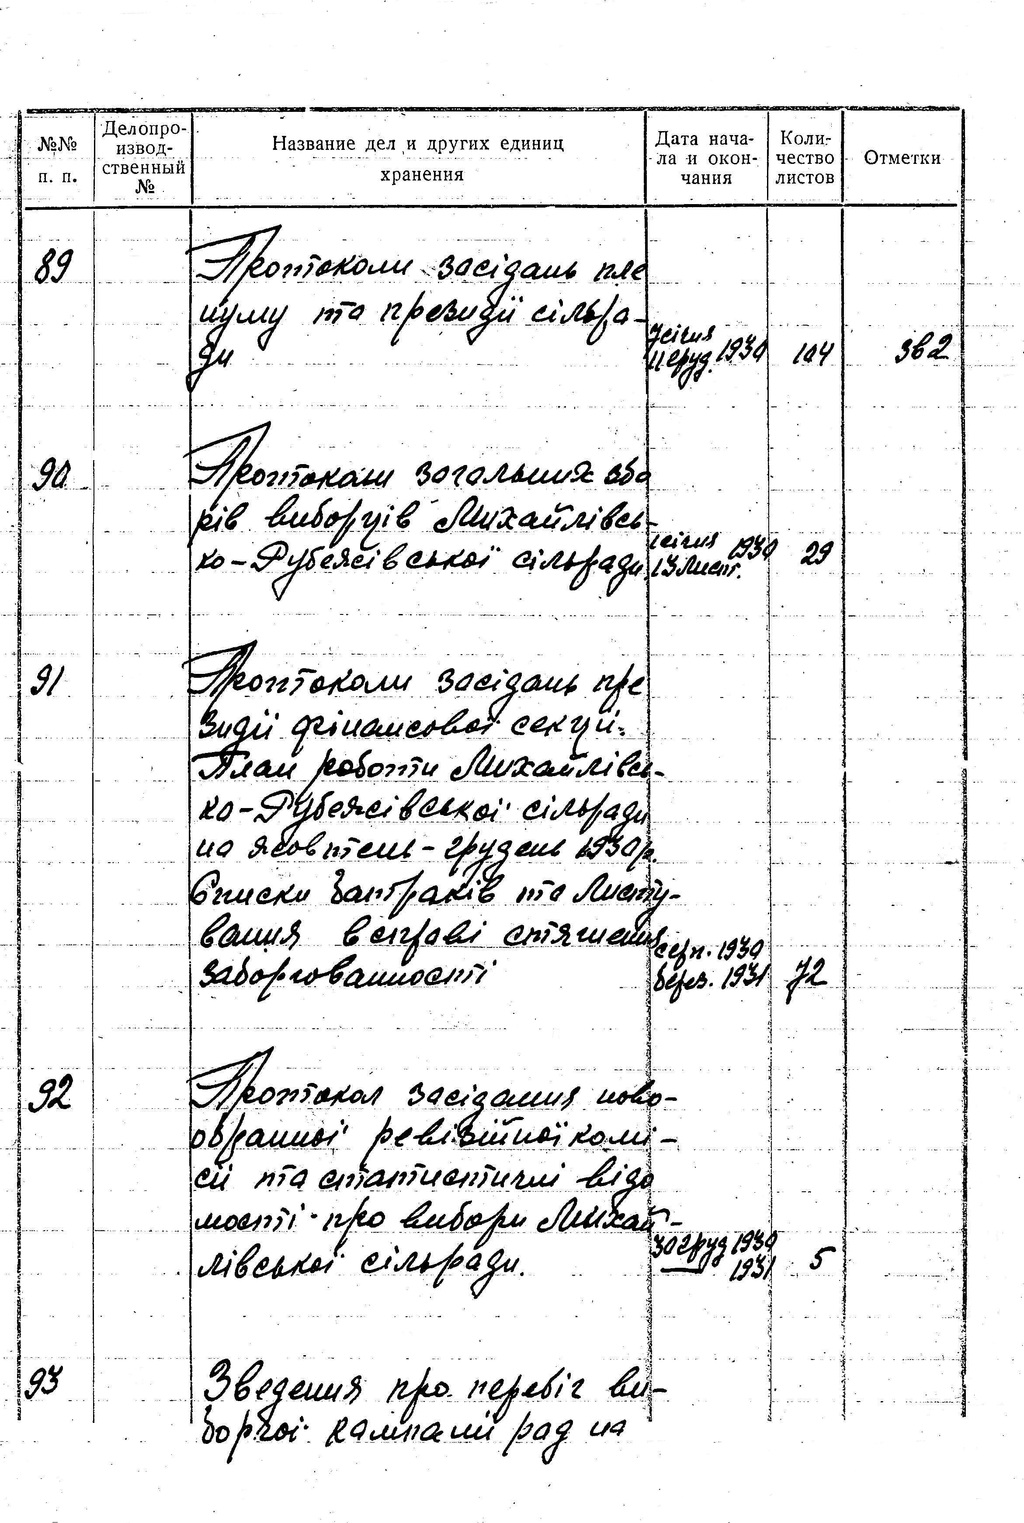 №№ п. п.
Делопро-
извод-
ственный
№
Название дел и других единиц
хранения
Дата нача-
ла и окон-
чания
Коли-
чество
листов
Отметки
89
Протоколи засідань пле
нуму та президії сільра-
ди
7 січня
11 груд. 1930
104
зв 2
90
Протоколи загальних збо
рів виборців Михайлівсь-
ко-Рубежівської сільради
1 січня 1930
13 Лист.
29
91
Протоколи засідань пре
зидії фінансової секції.
План роботи Михайлівсь-
ко-Рубежівської сільради
на жовтень-грудень 1930р.
Списки батраків та Листу-
вання в справі стягнення
заборгованности
серп. 1930
берез. 1931
72
92
Протокол засідання ново-
обранної ревізійної комі-
сії та статистичні відо
мості про вибори Михай-
лівської сільради.
30 груд 1930
1931
5
93
Зведення про перебіг ви-
борчої кампанії рад на